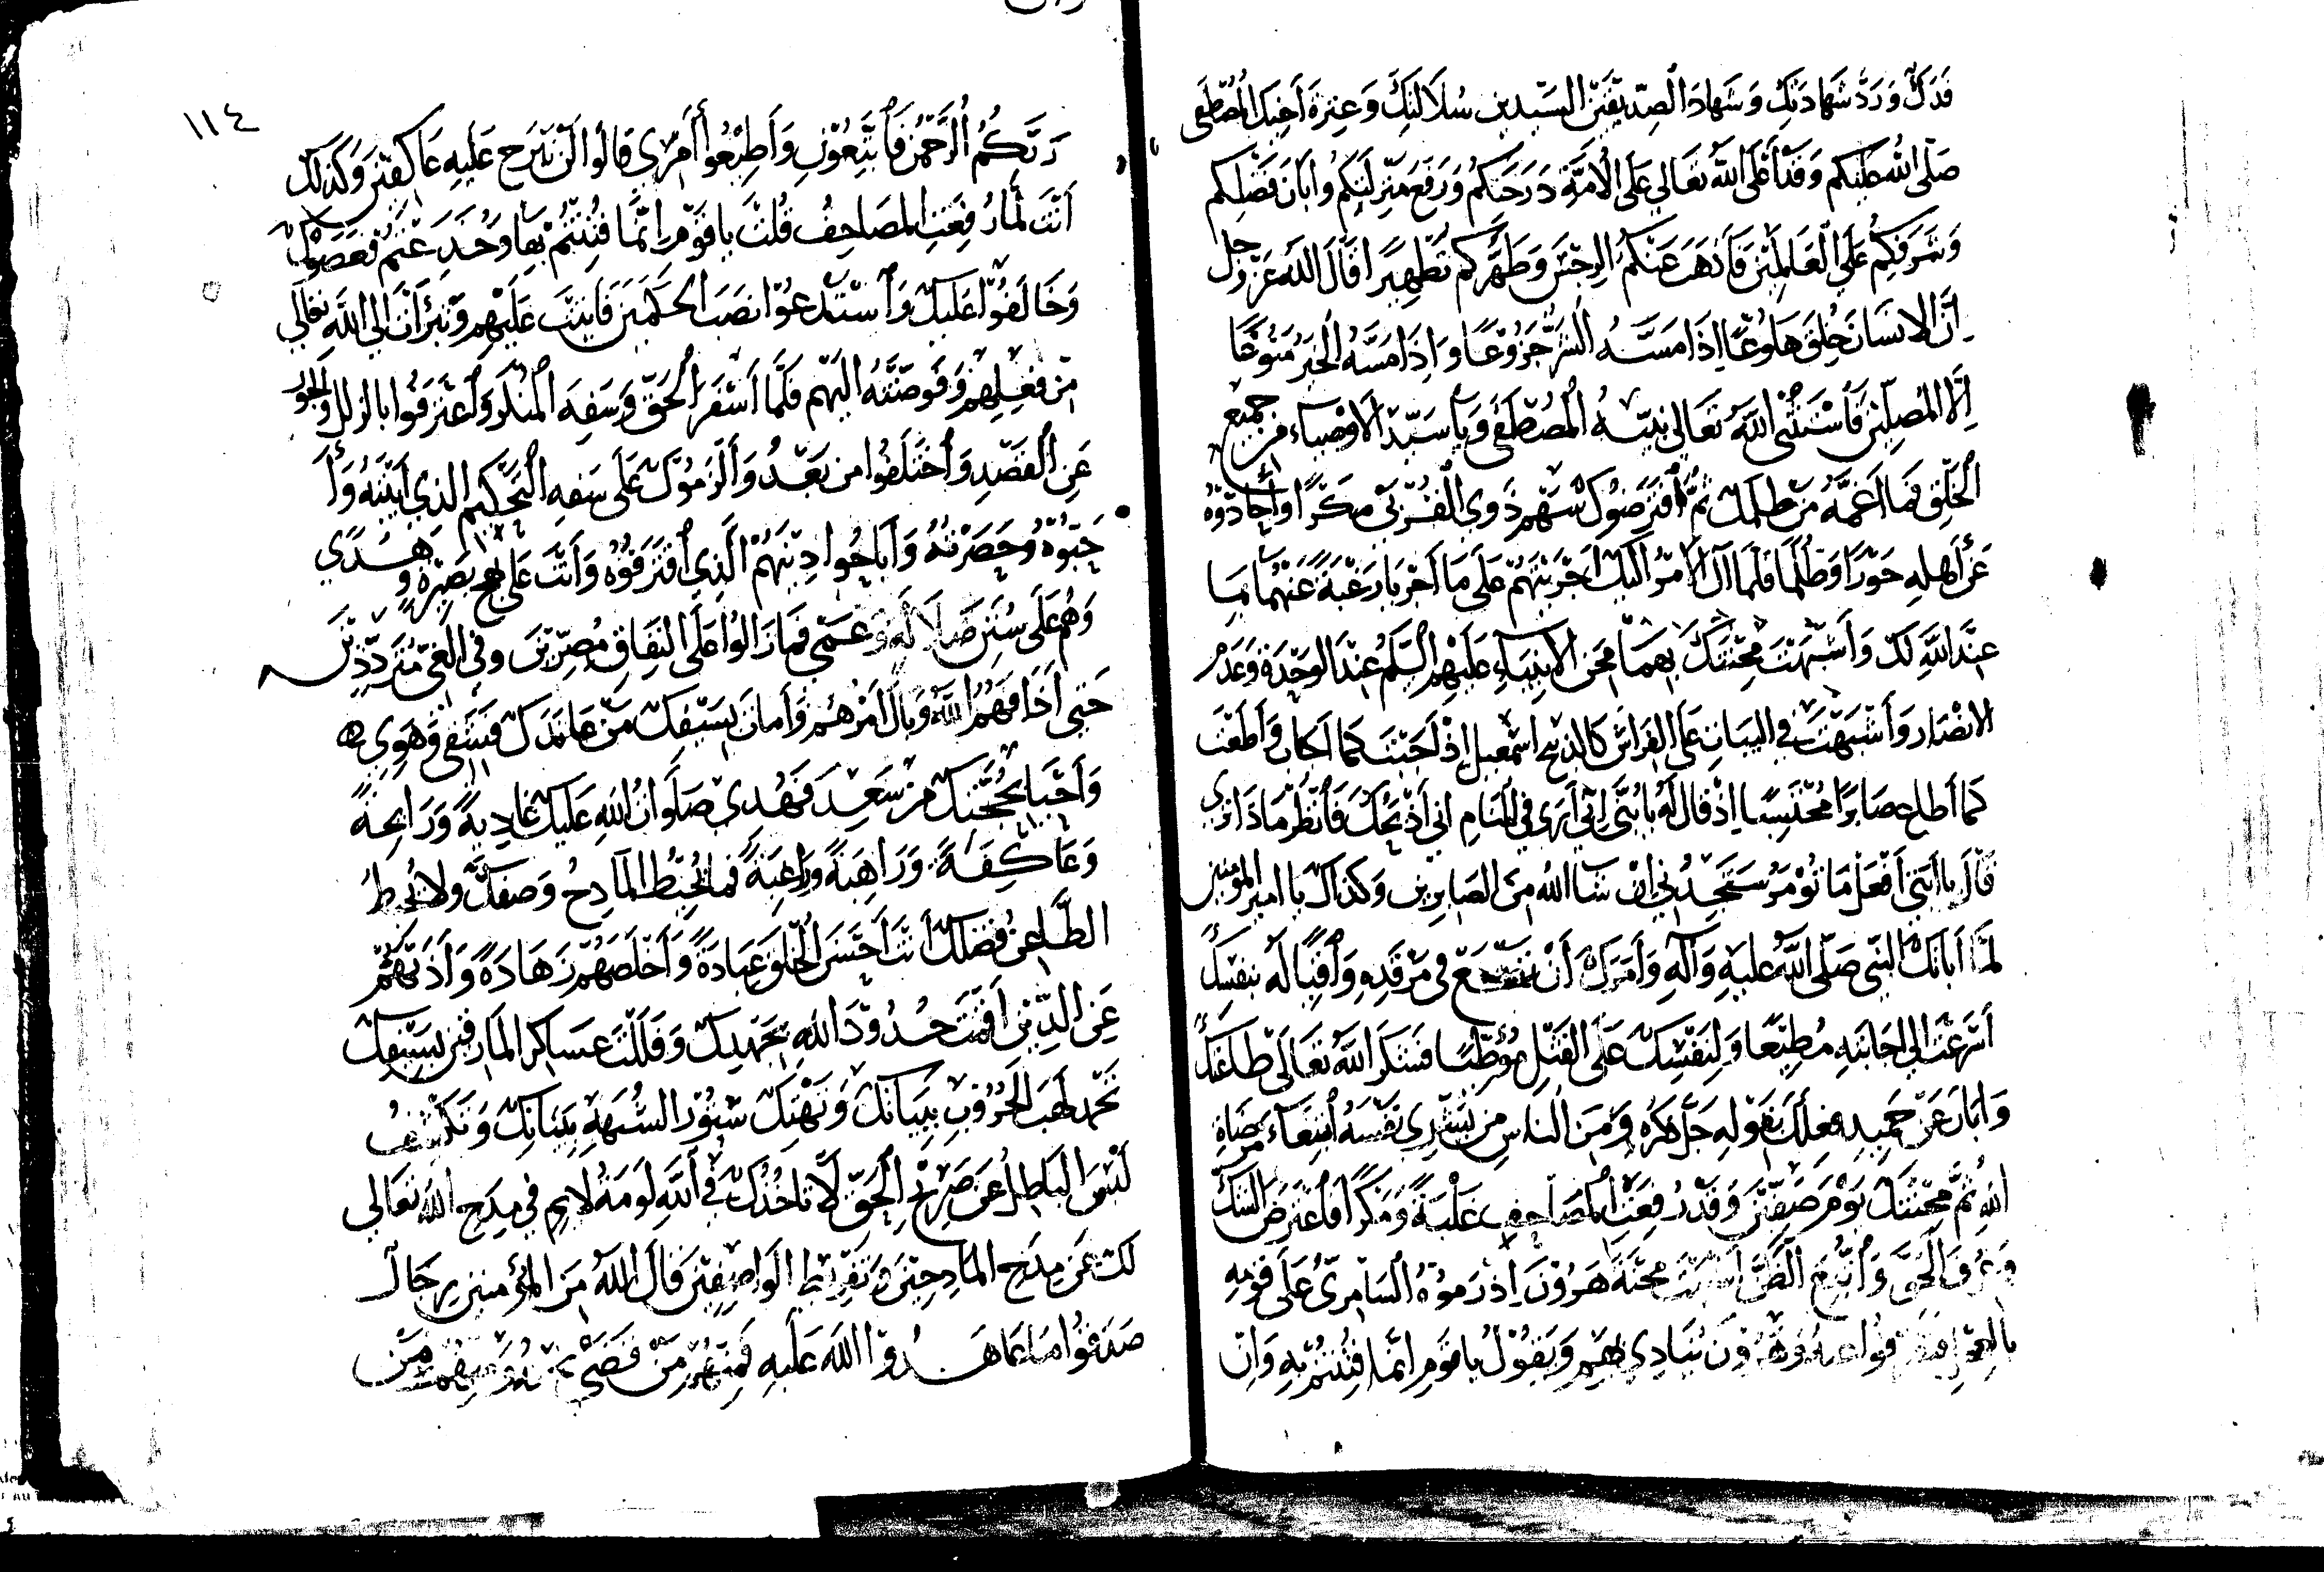 فدك ورد شهادتك وشهادة الصديقين السيدين سلالتك وعترة أخيك المصطفى
صلى الله عليكم وقد أعلى الله تعالى على الأمة درجتكم ورفع منزلتكم وأبان فضلكم
وشرفكم على العالمين فأذهب عنكم الرجس وطهركم تطهيرا قال الله عز وجل
إن الإنسان خلق هلوعا إذا مسه الشر جزوعا وإذا مسه الخير منوعا
إلا المصلين فاستثنى الله تعالى نبيه المصطفى ويا سيد الأوصياء من جميع
الخلق فما أعمه من ظلمك ثم أفترضوك سهم ذوي القربى مكرا وأحادوه
عن أهله جورا وظلما فلما آل الأمر إليك أجريتهم على ما أجريا رغبة عنهما بما
عند الله لك وأشبهت محنتك بهما محن الأنبياء عليهم السلم عند الوحدة وعدم
الأنصار وأشبهت في البيات على الفراش كالذبيح اسمعيل إذ أجبت كما أجاب وأطعت
كما أطاع صابرا محتسبا إذ قال له يا بني إني أرى في المنام أني أذبحك فانظر ماذا ترى
قال يا أبتي أفعل ما تؤمر ستجدني إن شا الله من الصابرين وكذلك يا أمير المؤمنين
لما أباتك النبي صلى الله عليه وآله وأمرك أن تضجع في مرقده واقيا له بنفسك
أسرعت إلى إجابته مطيعا ولنفسك على القتل موطئا فشكر الله تعالى طاعتك
وأبان عن جميل فعلك بقوله جل ذكره ومن الناس من يشري نفسه ابتغاء مرضاة
الله ثم محنتك يوم صفين وقد رفعت المصاحف غلبة ومكرا فأعترض الشك
وعزف الحق وأتبع الظن أشبهت محنة هرون إذ رموه السامري على قومه
بالعجل فتفرقوا عنه وهرون ينادي بهم ويقول يا قوم إنما فتنتم به وإن
١١٤
ربكم الرحمن فاتبعون وأطيعوا أمري قالوا لن نبرح عليه عاكفين وكذلك
أنت لما رفعت المصاحف قلت يا قوم إنما فتنتم بها وخدعتم فعصوك
وخالفوا عليك واستدعوا نصب الحكمين فأبيت عليهم وتبرأت إلى الله تعالى
من فعلهم وفوضته إليهم فلما أسفر الحق وسفه المنكر وأعترفوا بالزلل والجور
عن القصد واختلفوا من بعد وألزموك على سفه التحكيم الذي أبيته وأ
حبوه وحصرته وأباحوا دينهم الذي أقترفوه وأنت على نهج بصيرة وهدى
وهم على سنن ضلالة وعمى فما زالوا على النفاق مصرين وفي الغي مترددين
حتى أذاقهم الله وبال أمرهم وأمات بسيفك من عاندك فشقى وهوى
وأحيا بحجتك من سعد فهدي صلوات الله عليك غادية ورايحة
وعاكفة وراهبة وراغبة فما يحيط المادح وصفك ولا يحبط
الطاعن فضلك أنت أحسن الخلق عبادة وأخلصهم زهادة وأذبهم
عن الدين أقمت حدود الله بجهدك وفللت عساكر المارقين بسيفك
تخمد لهب الحروب ببيانك وتهتك ستور الشبهة ببيانك وتكشف
لبس الباطل عن صريح الحق لا تاخذك في الله لومة لايم في مدح الله تعالى
لك عن مدح المادحين وتقريظ الواصفين قال الله من المؤمنين رجال
صدقوا ما عاهدوا الله عليه فمنهم من قضى نحبه ومنهم من